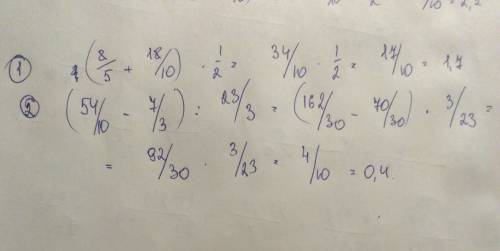 ① (8/5 + 18/10) · 1/2 = 34/10 · 1/2 = 17/10 = 1,7
② (54/10 - 7/3) : 23/3 = (162/30 - 70/30) · 3/23 =
= 82/30 · 3/23 = 4/10 = 0,4.